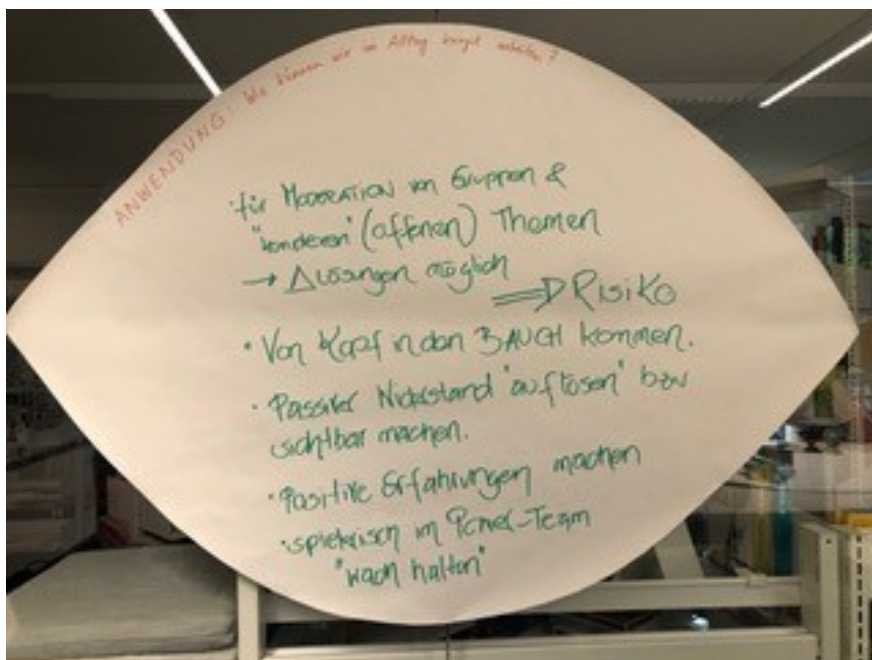 ANWENDUNG: Wie können wir im Alltag damit arbeiten?
· für Moderation von Gruppen &
"anderen" (offenen) Themen
→ Δ Lösungen möglich
⇒ Risiko
· Von Kopf in den BAUCH kommen.
· Passiver Widerstand "auflösen" bzw
sichtbar machen.
· Positive Erfahrungen machen
· spielerisch im Power-Team
"wach halten"